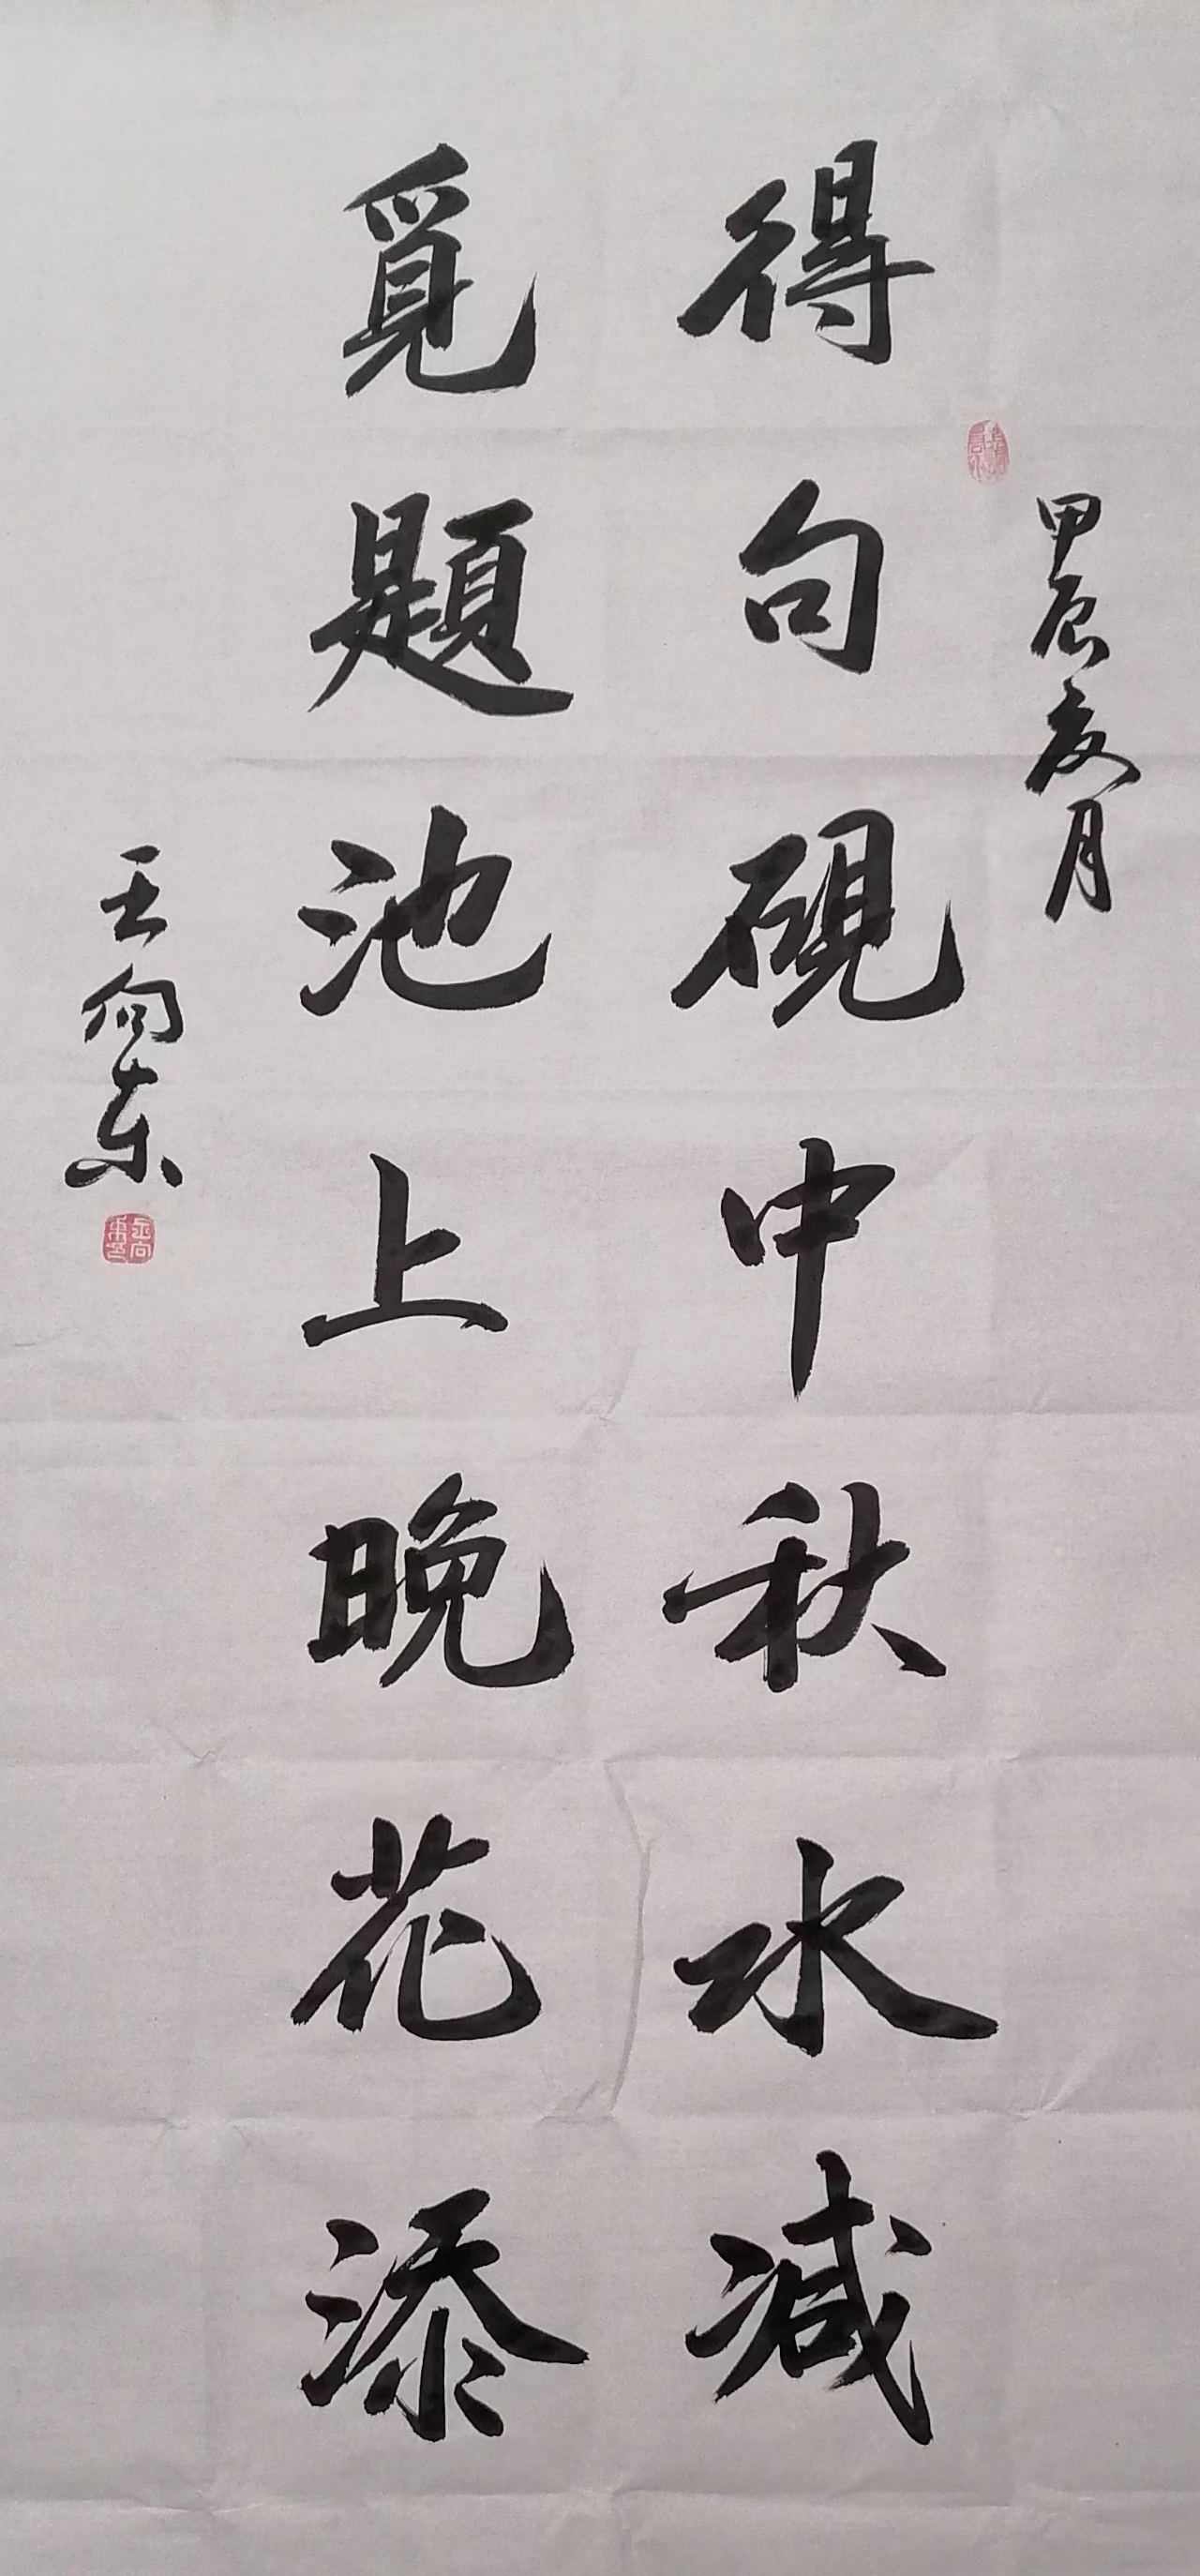 甲辰夏月
得句砚中秋水减
觅题池上晚花添
王向东